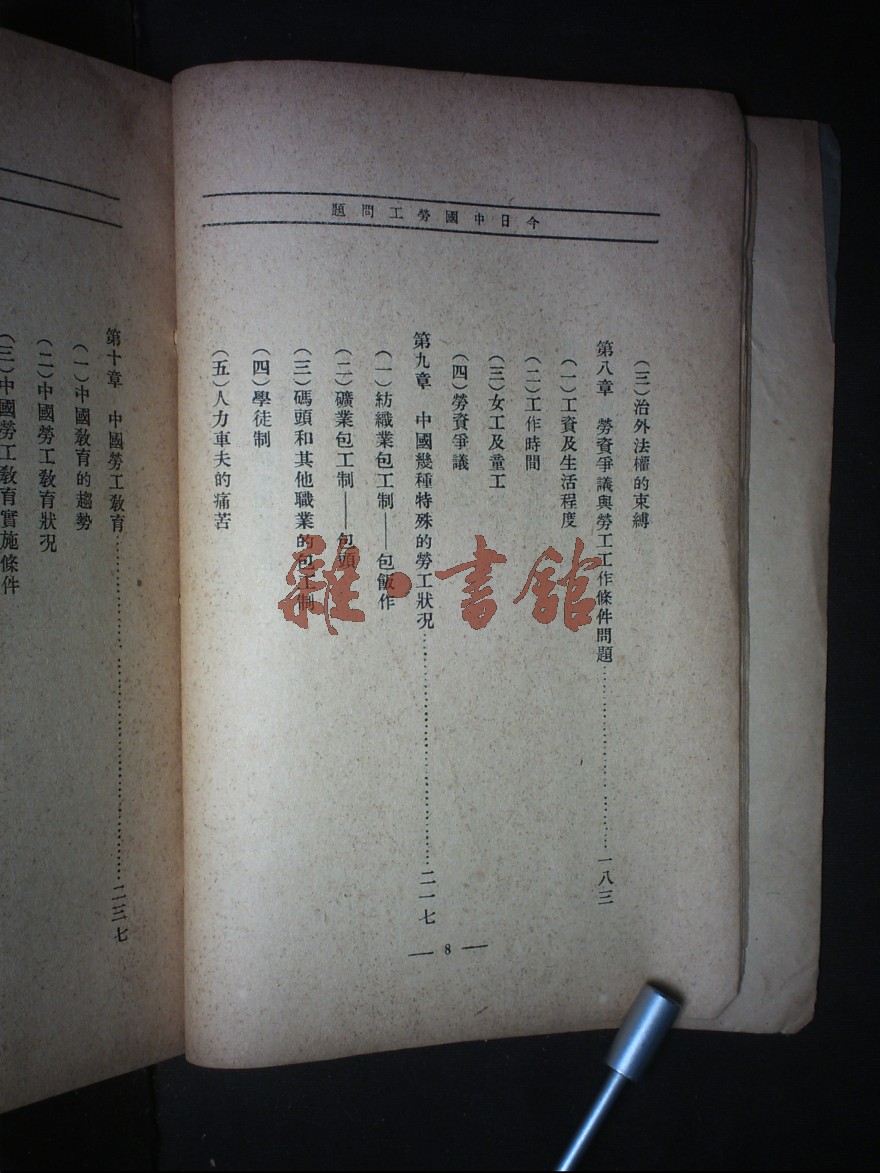 今日中國勞工問題
（三）治外法權的束縛
第八章　勞資爭議與勞工工作條件問題……………………一八三
（一）工資及生活程度
（二）工作時間
（三）女工及童工
（四）勞資爭議
第九章　中國幾種特殊的勞工狀况……………………二一七
（一）紡織業包工制——包飯作
（二）礦業包工制——包頭
（三）碼頭和其他職業的包工制
（四）學徒制
（五）人力車夫的痛苦
— 8 —
第十章　中國勞工教育……………………二三七
（一）中國教育的趨勢
（二）中國勞工教育狀况
（三）中國勞工教育實施條件
雜·書館